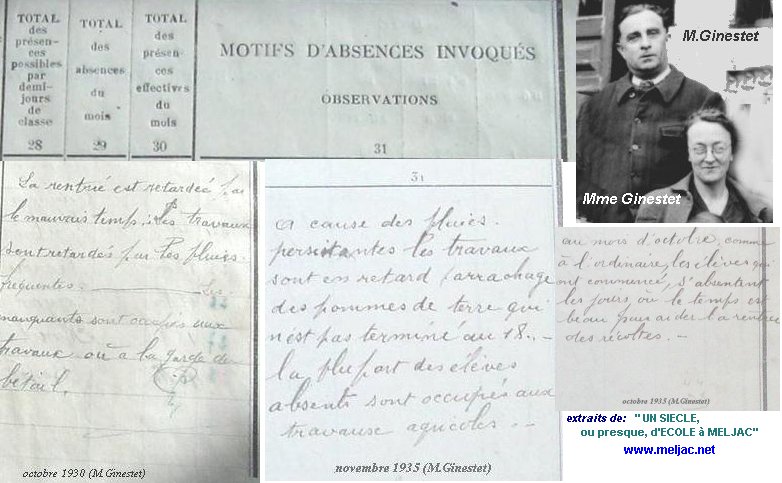 TOTAL
des
présen-
ces
possibles
par
demi-
jours
de
classe
28
TOTAL
des
absences
du
mois
29
TOTAL
des
présen-
ces
effectives
du
mois
30
MOTIFS D'ABSENCES INVOQUÉS
OBSERVATIONS
31
M.Ginestet
Mme Ginestet
La rentrée est retardée par
le mauvais temps; les travaux
sont retardés par les pluies
fréquentes. Les
manquants sont occupés aux
travaux ou à la garde du
bétail.
octobre 1930 (M.Ginestet)
31
A cause des pluies
persistantes les travaux
sont en retard (arrachage
des pommes de terre qui
n'est pas terminé au 18. –
la plupart des élèves
absents sont occupés aux
travause agricoles. –
novembre 1935 (M.Ginestet)
au mois d'octobre, comme
à l'ordinaire, les élèves qui
ont commencé, s'absentent
les jours où le temps est
beau pour aider la rentrée
des récoltes. –
octobre 1935 (M.Ginestet)
extraits de: "UN SIECLE,
ou presque, d'ECOLE à MELJAC"
www.meljac.net